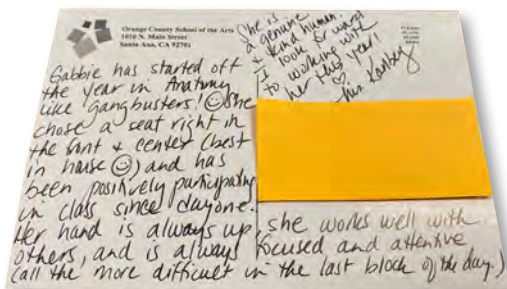 Orange County School of the Arts
1010 N. Main Street
Santa Ana, CA 92701
Gabbie has started off
the year in Anatomy
like "gangbusters!" ☺ She
chose a seat right in
the front + center (best
in house ☺) and has
been positively participating
in class since day one.
Her hand is always up, she works well with
others, and is always focused and attentive
(all the more difficult in the last block of the day.)
She is
a genuine
+ kind human
I look forward
to working with
her this year!
♡